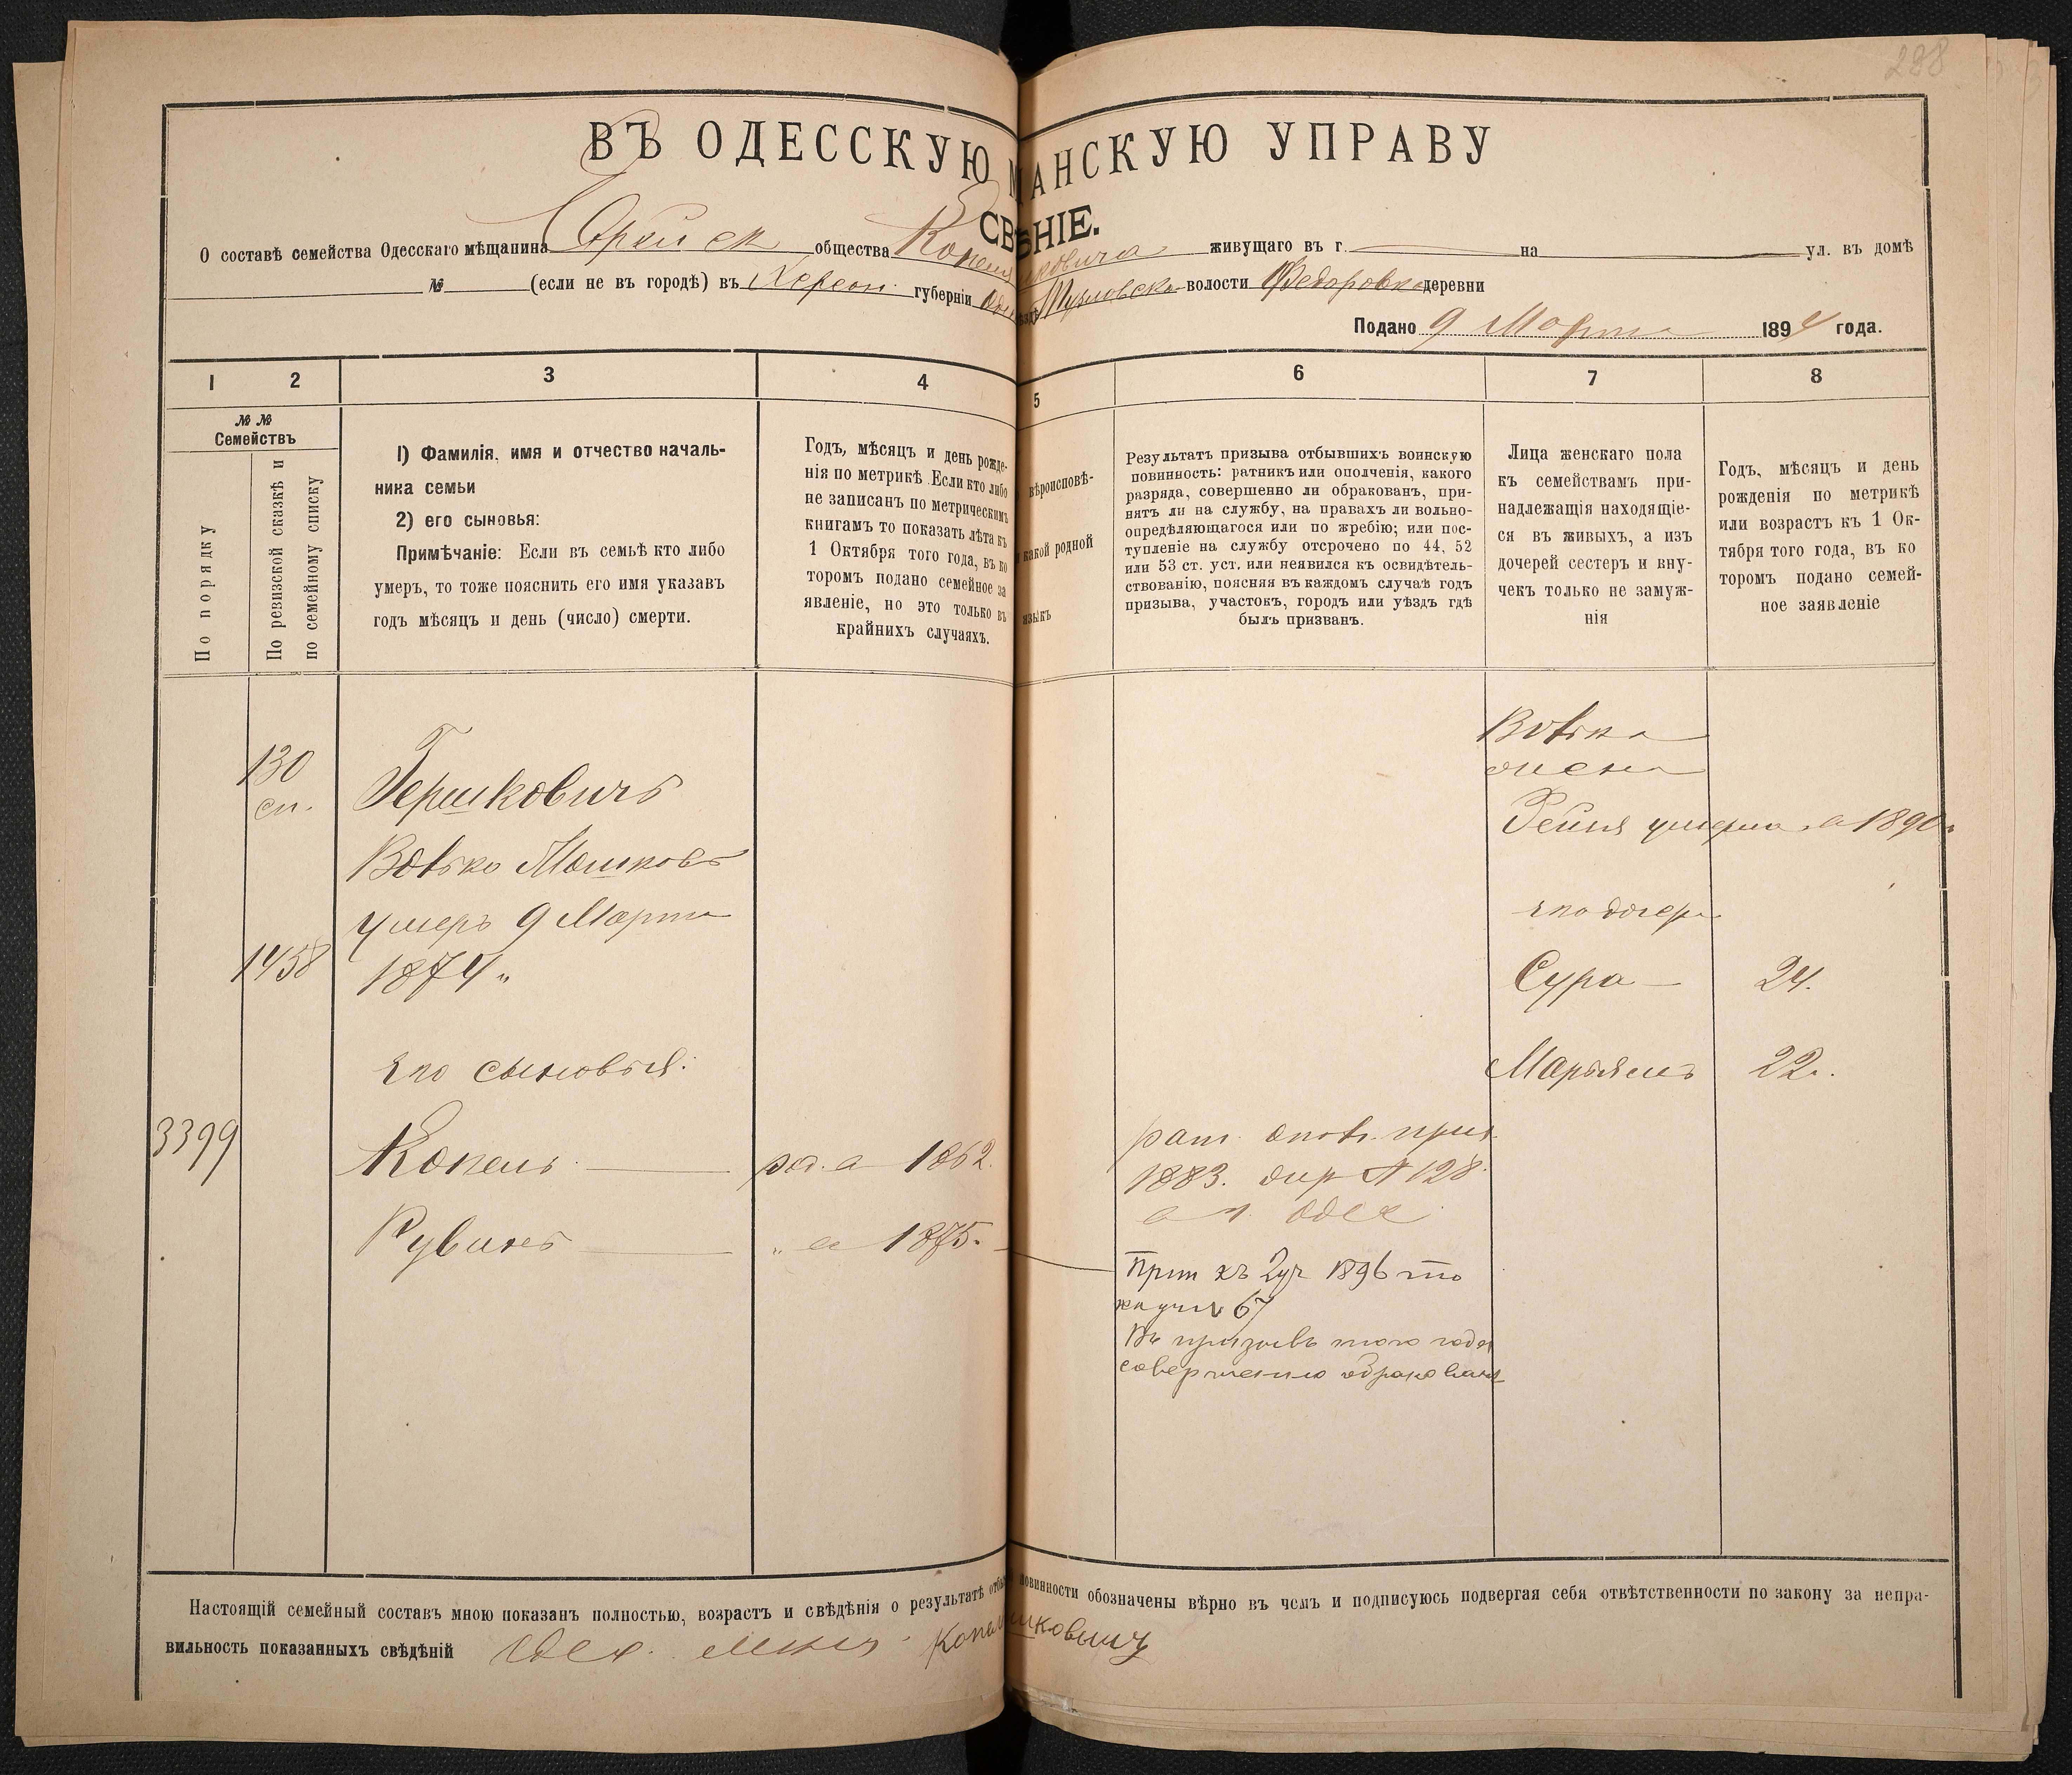 288
ВЪ ОДЕССКУЮ МАНСКУЮ УПРАВУ
СВѢНІЕ.
О составѣ семейства Одесскаго мѣщанина Еврейск общества Копеля живущаго въ г. на ул. въ домѣ
№ (если не въ городѣ) въ Херсон губерніи волости Федоровка деревни
Подано 9 Марта 1894 года.
1 2 3 4 5 6 7 8
№ № Семействъ
По порядку
По ревизской сказкѣ и по семейному списку
1) Фамилія, имя и отчество началь-
ника семьи
2) его сыновья:
Примѣчаніе: Если въ семьѣ кто либо
умеръ, то тоже пояснить его имя указавъ
годъ мѣсяцъ и день (число) смерти.
Годъ, мѣсяцъ и день рожде-
нія по метрикѣ Если кто либо
не записанъ по метрическимъ
книгамъ то показать лѣта къ
1 Октября того года, въ ко
торомъ подано семейное за
явленіе, но это только въ
крайнихъ случаяхъ.
вѣроисповѣ-
какой родной
языкъ
Результатъ призыва отбывшихъ воинскую
повинность: ратникъ или ополченія, какого
разряда, совершенно ли обракованъ, при-
нятъ ли на службу, на правахъ ли вольно-
опредѣляющагося или по жребію; или пос-
тупленіе на службу отсрочено по 44, 52
или 53 ст. уст. или неявился къ освидѣтель-
ствованію, поясняя въ каждомъ случаѣ годъ
призыва, участокъ, городъ или уѣздъ гдѣ
былъ призванъ.
Лица женскаго пола
къ семействамъ при-
надлежащія находящіе-
ся въ живыхъ, а изъ
дочерей сестеръ и вну-
чекъ только не замуж-
нія
Годъ, мѣсяцъ и день
рожденія по метрикѣ
или возрастъ къ 1 Ок-
тября того года, въ ко
торомъ подано семей-
ное заявленіе
130
сп.
Гершковичъ
Волько Мошковъ
умеръ 9 Марта
1458
1874
его сыновья:
3399
Копель род. в 1862
Рувинъ " в 1875.
рат. опол. приз.
1883. жер № 128
в г. Одес
Прип къ 2 уч 1896 то
жеуч № 67
Въ призывъ того года
совершенно обракованъ
Волька
жена
Рейня умерла в 1890 г
его дочери
Сура 24.
Марьямъ 22.
Настоящій семейный составъ мною показанъ полностью, возрастъ и свѣдѣнія о результатѣ повинности обозначены вѣрно въ чемъ и подписуюсь подвергая себя отвѣтственности по закону за непра-
вильность показанныхъ свѣдѣній Одес. мѣщ.